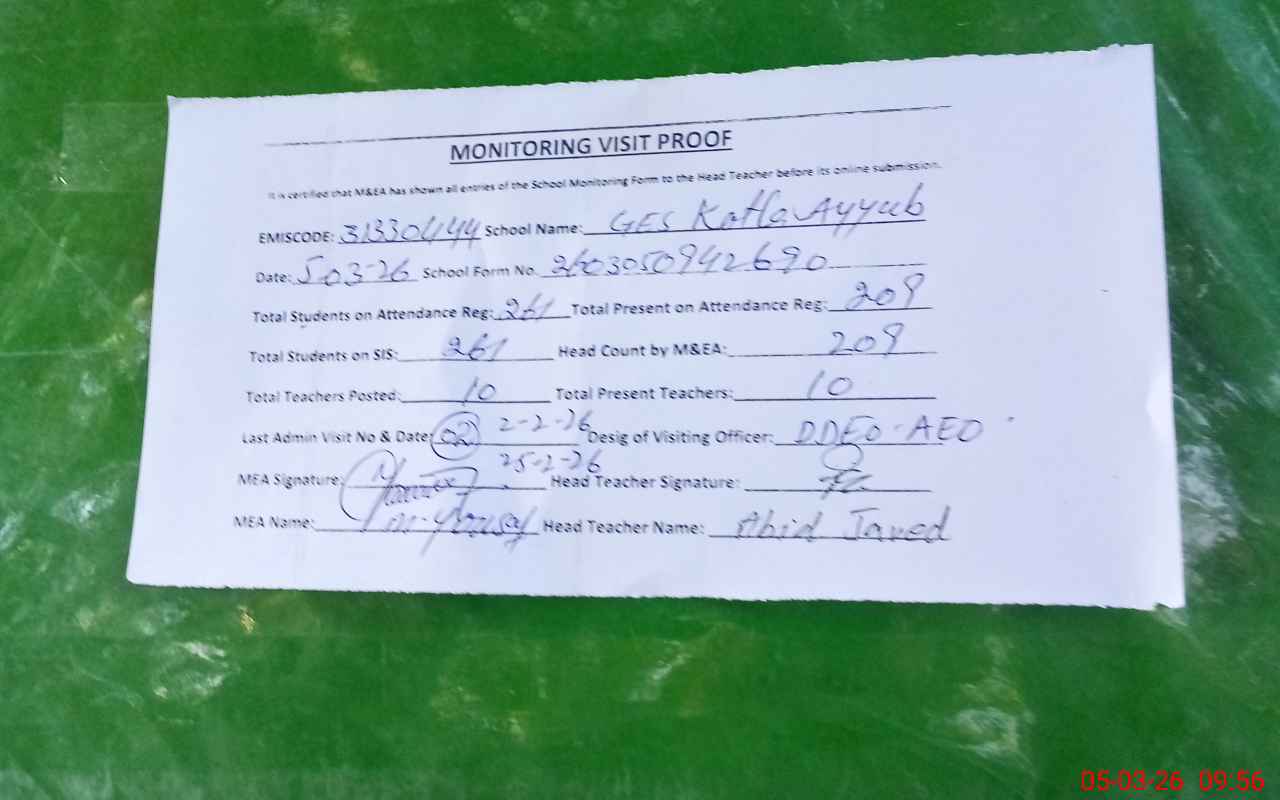 MONITORING VISIT PROOF
It is certified that M&EA has shown all entries of the School Monitoring Form to the Head Teacher before its online submission.
EMISCODE: 31330444 School Name: GES Katla Ayyub
Date: 5-03-26 School Form No. 2603050942690
Total Students on Attendance Reg: 261 Total Present on Attendance Reg: 209
Total Students on SIS: 261 Head Count by M&EA: 209
Total Teachers Posted: 10 Total Present Teachers: 10
Last Admin Visit No & Date: 02 2-2-26 Desig of Visiting Officer: DDEO-AEO
25-2-26
MEA Signature: Head Teacher Signature:
MEA Name: M-Yousaf Head Teacher Name: Abid Javed
05-03-26 09:56